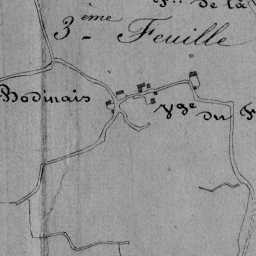 de la
3ème Feuille
Bodinais
Vge du